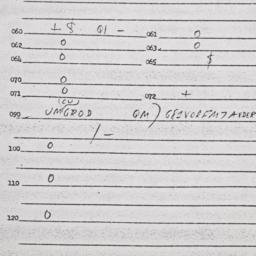 060 + $ 01 - 061 0
062 0 063 0
064 0 065 $
070 0
071 0 072 +
(CU)
099
/ -
100 0
110 0
120 0